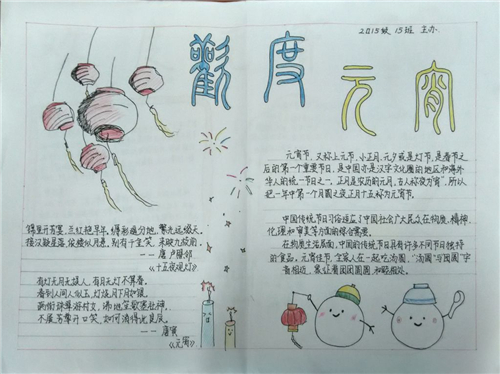 2015级 15班 主办
歡度元宵
元宵节，又称上元节，小正月，元夕或是灯节，是春节之
后的第一个重要节日，是中国亦是汉字文化圈的地区和海外
华人的统一节日之一，正月是农历的元月，古人称夜为宵，所以
把一年中第一个月圆之夜正月十五称为元宵节。
中国传统节日习俗适应了中国社会广大民众在物质、精神、
伦理和审美等方面的综合需要。
在物质生活层面，中国的传统节日具有许多不同节日独特
的食品。元宵佳节，全家人在一起吃汤圆，“汤圆”与“团圆”字
音相近，象征着团团圆圆和睦相处。
锦里开芳宴，兰红艳早年，缛彩遥分地，繁光远缀天。
接汉疑星落，依楼似月悬，别有千金笑，来映九枝前。
——唐 卢照邻
《十五夜观灯》
有灯无月无娱人，有月无灯不算春。
春到人间人似玉，灯烧月下月如银。
满街珠翠游村女，沸地笙歌赛社神。
不展芳尊开口笑，如何消得此良辰。
——唐寅
《元宵》